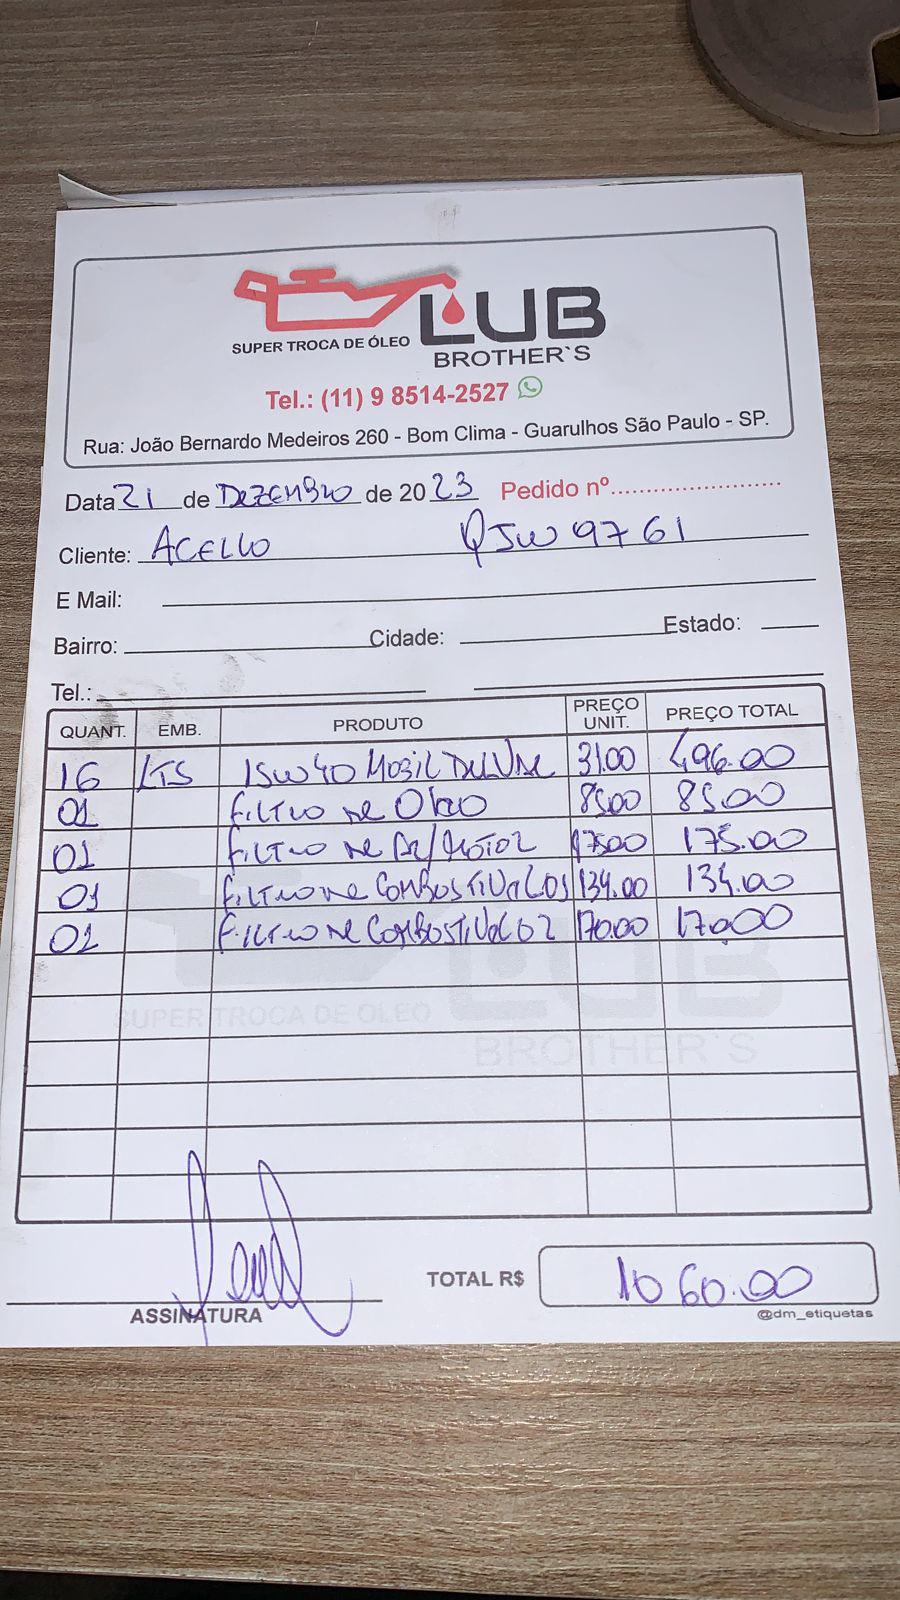 LUB
SUPER TROCA DE ÓLEO
BROTHER`S
Tel.: (11) 9 8514-2527
Rua: João Bernardo Medeiros 260 - Bom Clima - Guarulhos São Paulo - SP.
Data 21 de DEZEMBRO de 2023 Pedido nº........................
Cliente: ACELLO QJW 9761
E Mail:
Bairro: Cidade: Estado:
Tel.:
QUANT. EMB. PRODUTO PREÇO UNIT. PREÇO TOTAL
16 LTS 15W40 MOBIL DELVAC 31.00 496.00
01 FILTRO DE OLEO 85.00 85.00
01 FILTRO DE AR/MOTOR 175.00 175.00
01 FILTRO DE COMBOSTIVEL 01 134.00 134.00
01 FILTRO DE COMBOSTIVEL 02 170.00 170.00
SUPER TROCA DE ÓLEO LUB
BROTHER`S
TOTAL R$ 1060.00
ASSINATURA
@dm_etiquetas